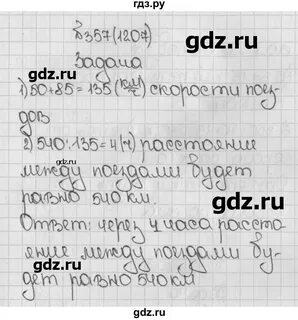 №357(1207) gdz.ru
Задача
1) 50+85=135 (км/ч) скорости поез-
дов
2) 540:135=4(ч) расстояние
между поездами будет
равно 540 км.
Ответ: через 4 часа расста
яние между поездами бу-
дет равно 540 км
gdz.ru
gdz.ru
gdz.ru
gdz.ru